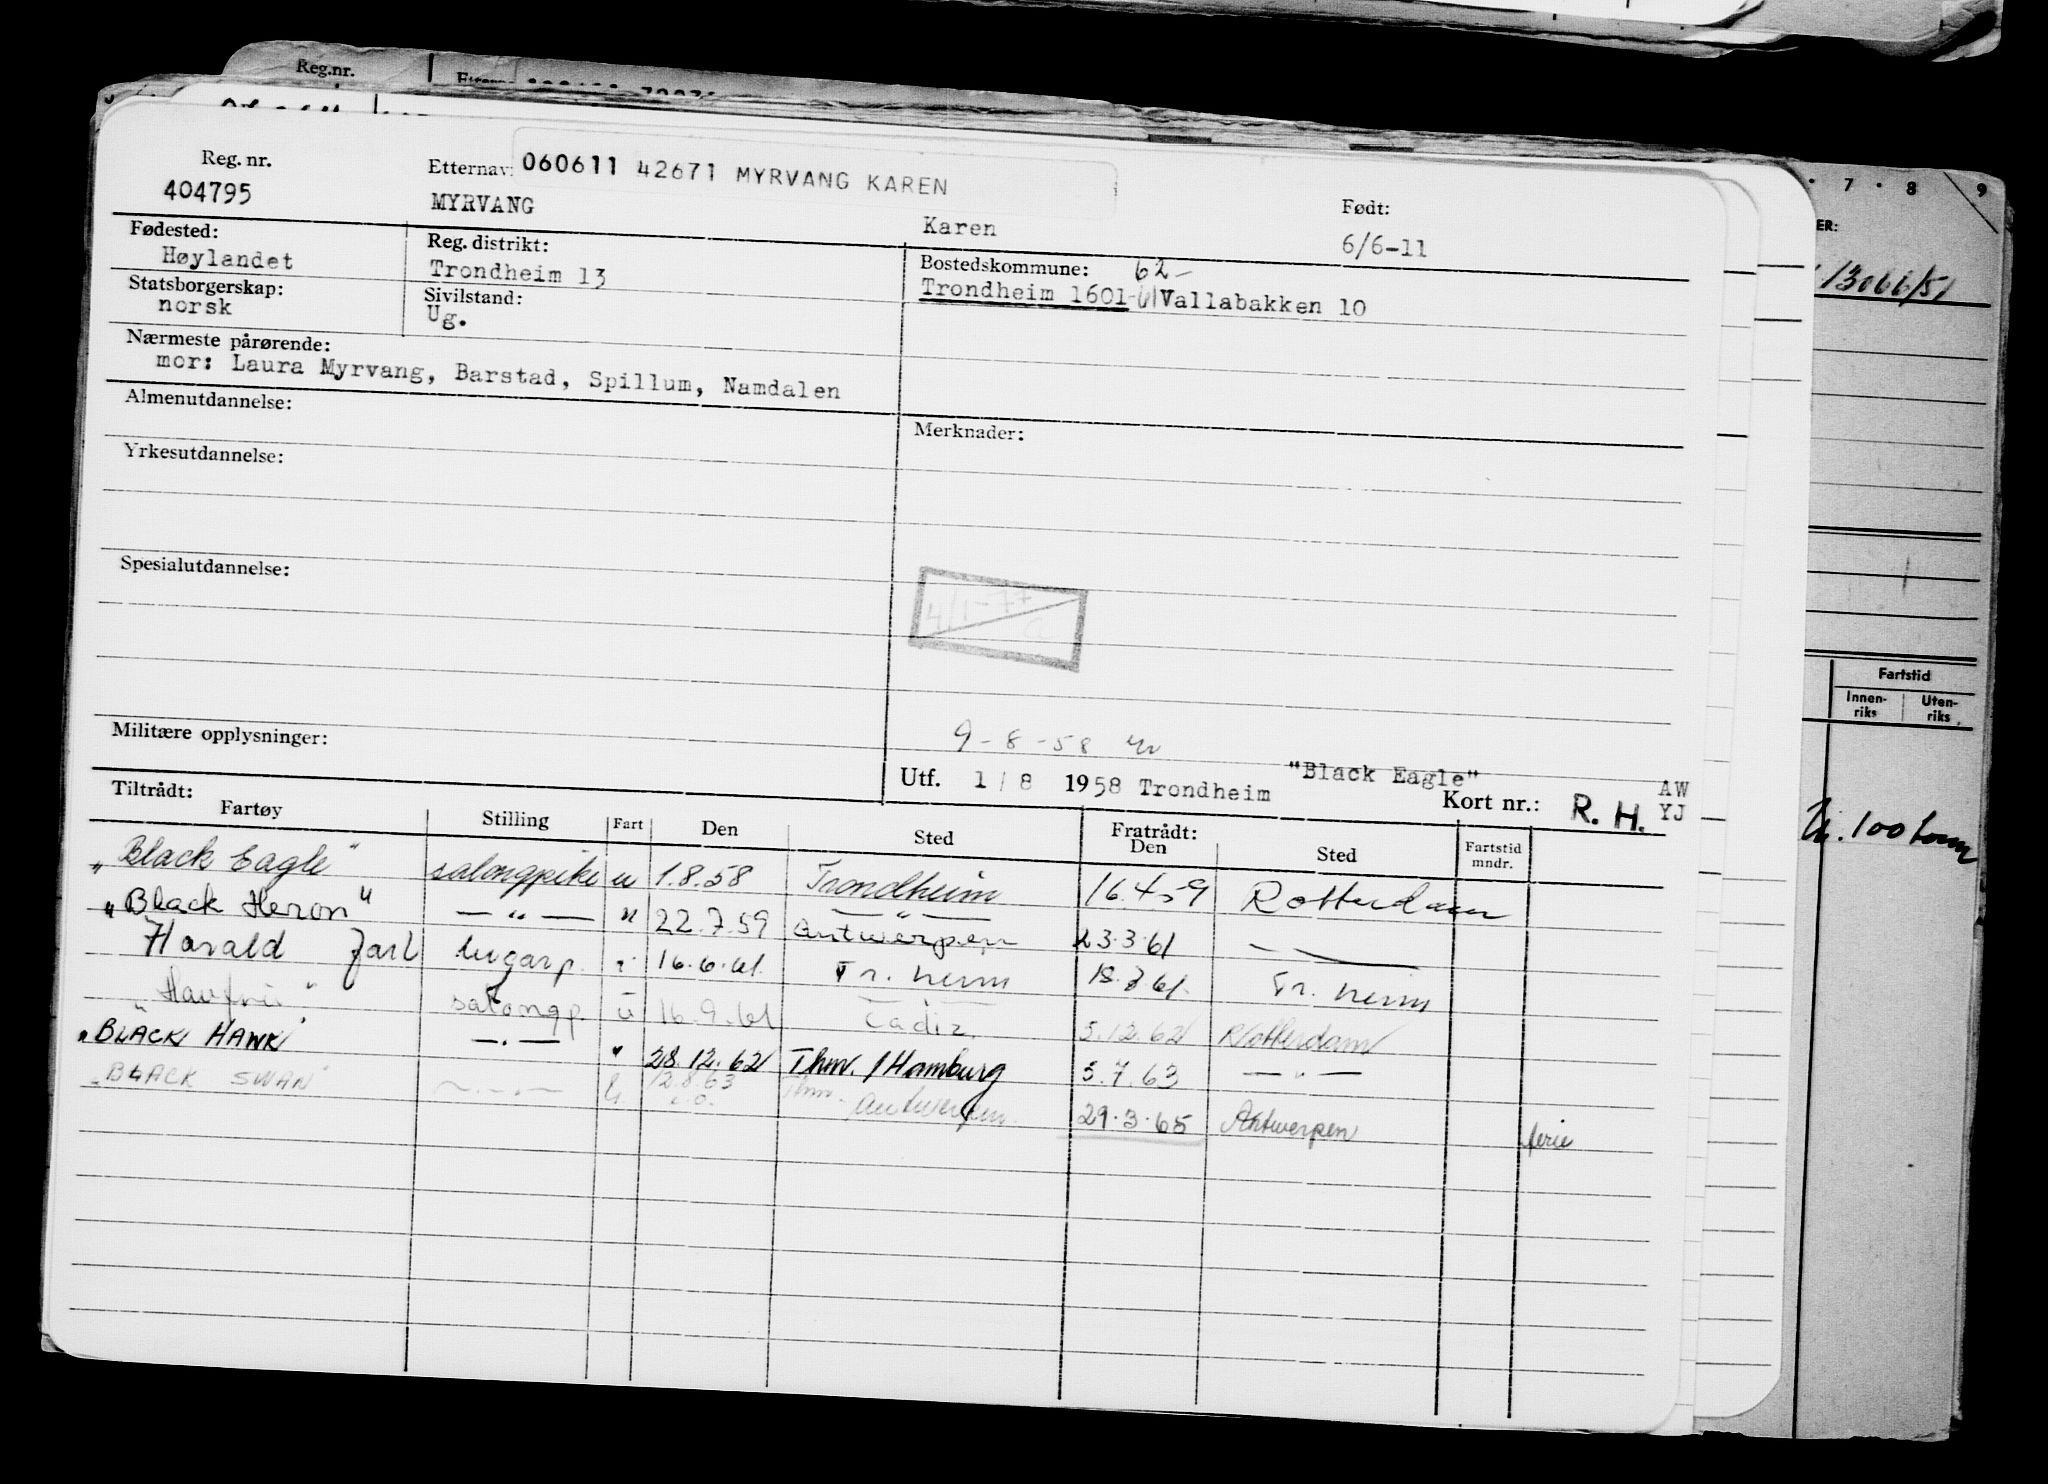 Reg.nr.
Reg. nr.
404795
Etternav: 060611 42671 MYRVANG KAREN
MYRVANG
Karen
Født:
6/6-11
Fødested:
Høylandet
Reg. distrikt:
Trondheim 13
Bostedskommune: 62-
Trondheim 1601-61 Vallabakken 10
Statsborgerskap:
norsk
Sivilstand:
Ug.
Nærmeste pårørende:
mor: Laura Myrvang, Barstad, Spillum, Namdalen
Almenutdannelse:
Merknader:
Yrkesutdannelse:
Spesialutdannelse:
4/1-77
Militære opplysninger:
9-8-58
Utf. 1/8 1958 Trondheim "Black Eagle"
Kort nr.: R. H. AW
YJ
Tiltrådt:
Fartøy Stilling Fart Den Sted Fratrådt: Den Sted Fartstid mndr.
"Black Eagle" salongpike u 1.8.58 Trondheim 16.4.59 Rotterdam
"Black Heron" — " — " 22.7.59 Antwerpen 23.3.61 —
Harald Jarl lugarp. 16.6.61. Tr.heim 18.7.61. Tr.heim
salongp. u 16.9.61 Cadiz 5.12.62 Rotterdam
"BLACK HAWK" — " — " 28.12.62 Thm. / Hamburg 5.7.63 — " —
"BLACK SWAN" — " — u. 12.8.63 Thm. Antwerpen 29.3.65 Antwerpen ferie
7 8 9
ER:
13066/51
Fartstid
Innen-
riks
Uten-
riks
100